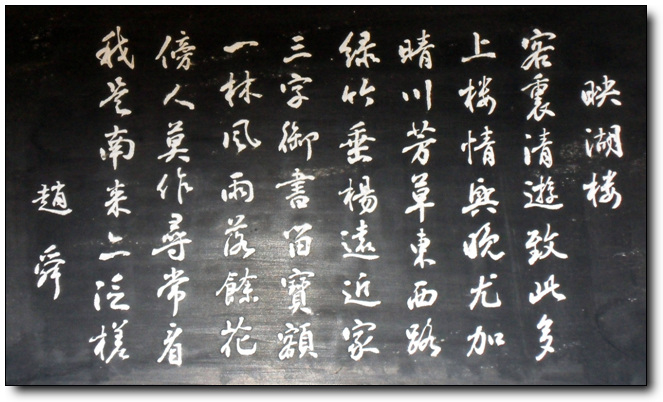 映湖楼
客裏清遊致此多
上楼情興晚尤加
晴川芳草東西路
绿竹垂楊遠近家
三字御書留寶額
一林風雨落餘花
傍人莫作尋常看
我是南来亦泛槎
趙舜